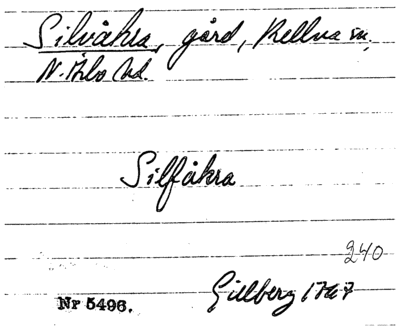 Silvåkra, gård, Kellna sn.
N. Åsbo hd.
Silfåkra
240
Gillberg 1767
Nr 5496.